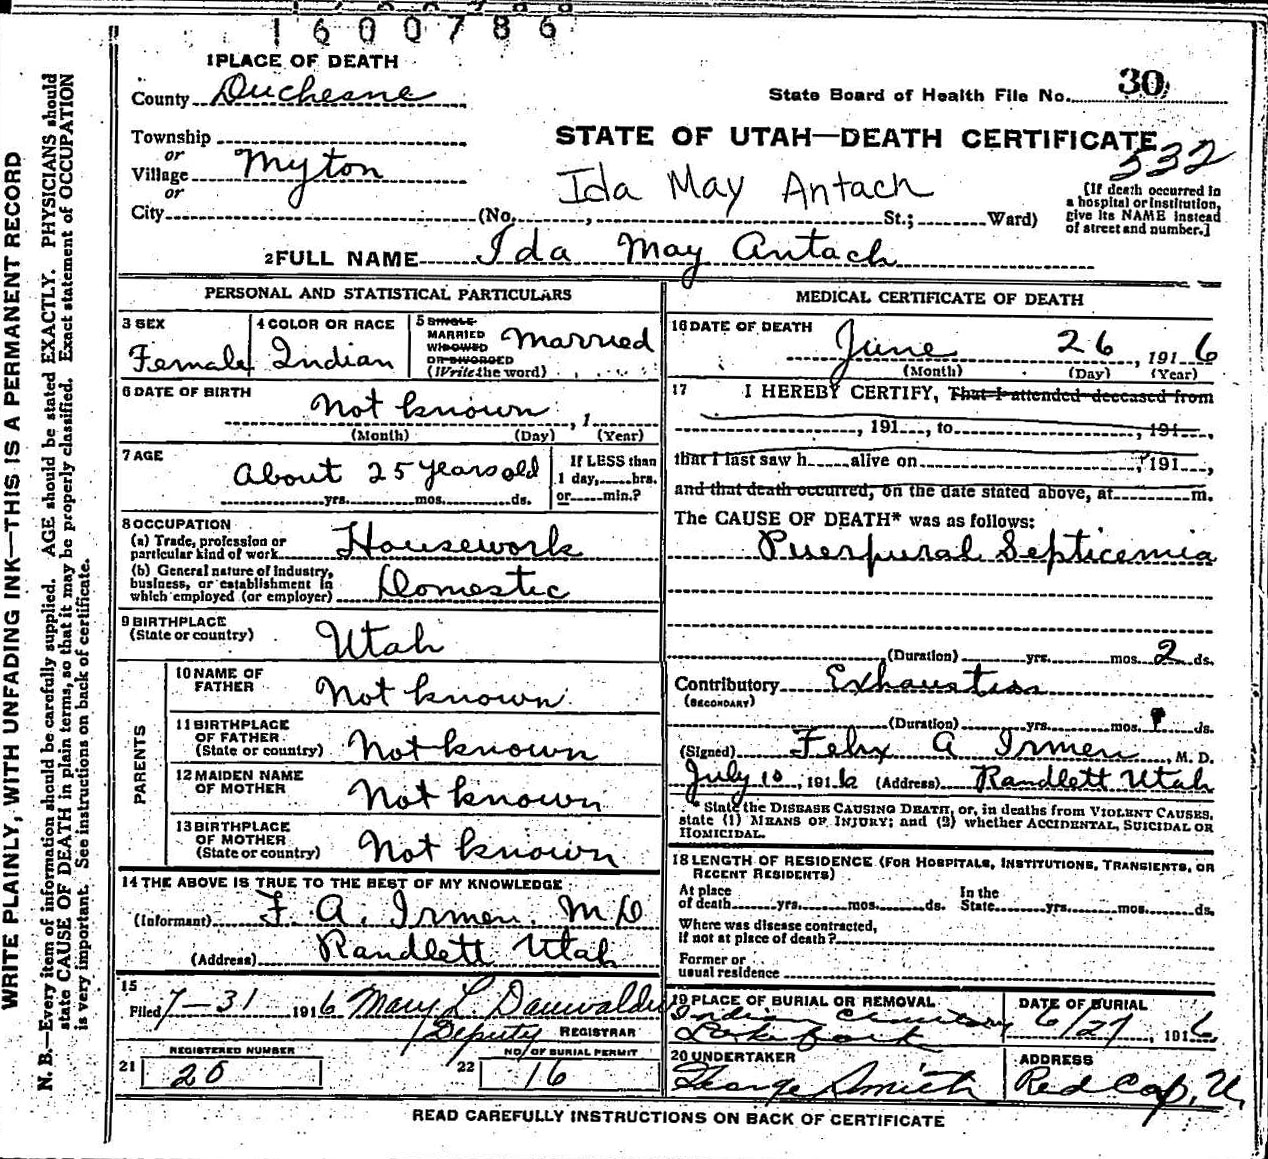 1600786
1 PLACE OF DEATH
County Duchesne
State Board of Health File No. 30
Township
or
Village Myton
or
City (No. , St.; Ward)
STATE OF UTAH—DEATH CERTIFICATE
532
Ida May Antach
[If death occurred in
a hospital or institution,
give its NAME instead
of street and number.]
2 FULL NAME Ida May Antach
PERSONAL AND STATISTICAL PARTICULARS
3 SEX
Female
4 COLOR OR RACE
Indian
5 SINGLE
MARRIED
WIDOWED
OR DIVORCED
(Write the word)
Married
6 DATE OF BIRTH
Not known , 1
(Month) (Day) (Year)
7 AGE
About 25 years old
yrs. mos. ds.
If LESS than
1 day, hrs.
or min.?
8 OCCUPATION
(a) Trade, profession or
particular kind of work Housework
(b) General nature of industry,
business, or establishment in
which employed (or employer) Domestic
9 BIRTHPLACE
(State or country) Utah
PARENTS
10 NAME OF
FATHER Not known
11 BIRTHPLACE
OF FATHER
(State or country) Not known
12 MAIDEN NAME
OF MOTHER Not known
13 BIRTHPLACE
OF MOTHER
(State or country) Not known
14 THE ABOVE IS TRUE TO THE BEST OF MY KNOWLEDGE
(Informant) F. A. Irmen, M D
(Address) Randlett Utah
15
Filed 7-31 1916 Mary L. Dauwalder
Deputy REGISTRAR
REGISTERED NUMBER
21 20
NO. OF BURIAL PERMIT
22 16
MEDICAL CERTIFICATE OF DEATH
16 DATE OF DEATH
June 26, 1916
(Month) (Day) (Year)
17 I HEREBY CERTIFY, That I attended deceased from
, 191 , to , 191 ,
that I last saw h alive on , 191 ,
and that death occurred, on the date stated above, at m.
The CAUSE OF DEATH* was as follows:
Puerpural Septicemia
(Duration) yrs. mos. 2 ds.
Contributory Exhaustion
(SECONDARY)
(Duration) yrs. mos. ds.
(Signed) Felix A Irmen, M. D.
July 10, 1916 (Address) Randlett Utah
* State the DISEASE CAUSING DEATH, or, in deaths from VIOLENT CAUSES,
state (1) MEANS OF INJURY; and (2) whether ACCIDENTAL, SUICIDAL OR
HOMICIDAL.
18 LENGTH OF RESIDENCE (FOR HOSPITALS, INSTITUTIONS, TRANSIENTS, OR
RECENT RESIDENTS)
At place
of death yrs. mos. ds.
In the
State yrs. mos. ds.
Where was disease contracted,
if not at place of death?
Former or
usual residence
19 PLACE OF BURIAL OR REMOVAL
Indian Cemetery
DATE OF BURIAL
6/27, 1916
20 UNDERTAKER
George Smith
ADDRESS
Red Cap, U.
READ CAREFULLY INSTRUCTIONS ON BACK OF CERTIFICATE
WRITE PLAINLY, WITH UNFADING INK—THIS IS A PERMANENT RECORD
N. B.—Every item of information should be carefully supplied. AGE should be stated EXACTLY. PHYSICIANS should
state CAUSE OF DEATH in plain terms, so that it may be properly classified. Exact statement of OCCUPATION
is very important. See instructions on back of certificate.